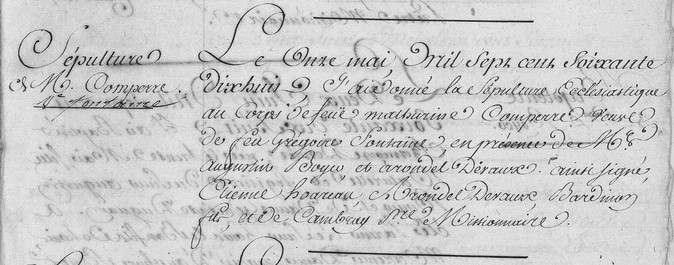 Sépulture
M. Comperre.
Vve fontaine
Le Onze mai Mil Sept cent Soixante
Dixhuit J'ai donné la sépulture Ecclésiastique
au Corps de feüe mathurine Comperre Veuve
de feu Grégoire fontaine, en présence de Mrs
augustin Boyer et arondel Déraux. ainsi signé,
Etienne hoareau, Arondel Deraux, Bardinon
fils, et de Cambray Ptre Missionnaire.